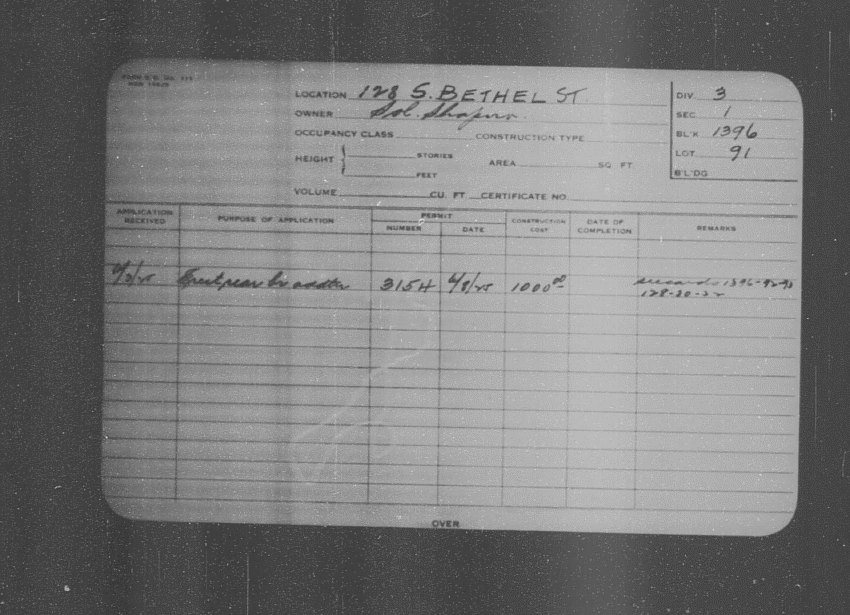 LOCATION 128 S. BETHEL ST
DIV. 3
OWNER Sol. Shapiro
SEC. 1
OCCUPANCY CLASS CONSTRUCTION TYPE
BL'K 1396
HEIGHT STORIES AREA SQ. FT.
LOT 91
FEET
B'L'DG
VOLUME CU. FT. CERTIFICATE NO.
APPLICATION RECEIVED PURPOSE OF APPLICATION PERMIT CONSTRUCTION COST DATE OF COMPLETION REMARKS
NUMBER DATE
Erect rear br addtn 315H 6/8/25 1000 00 see cards 1396-92-93
128-30-32
OVER